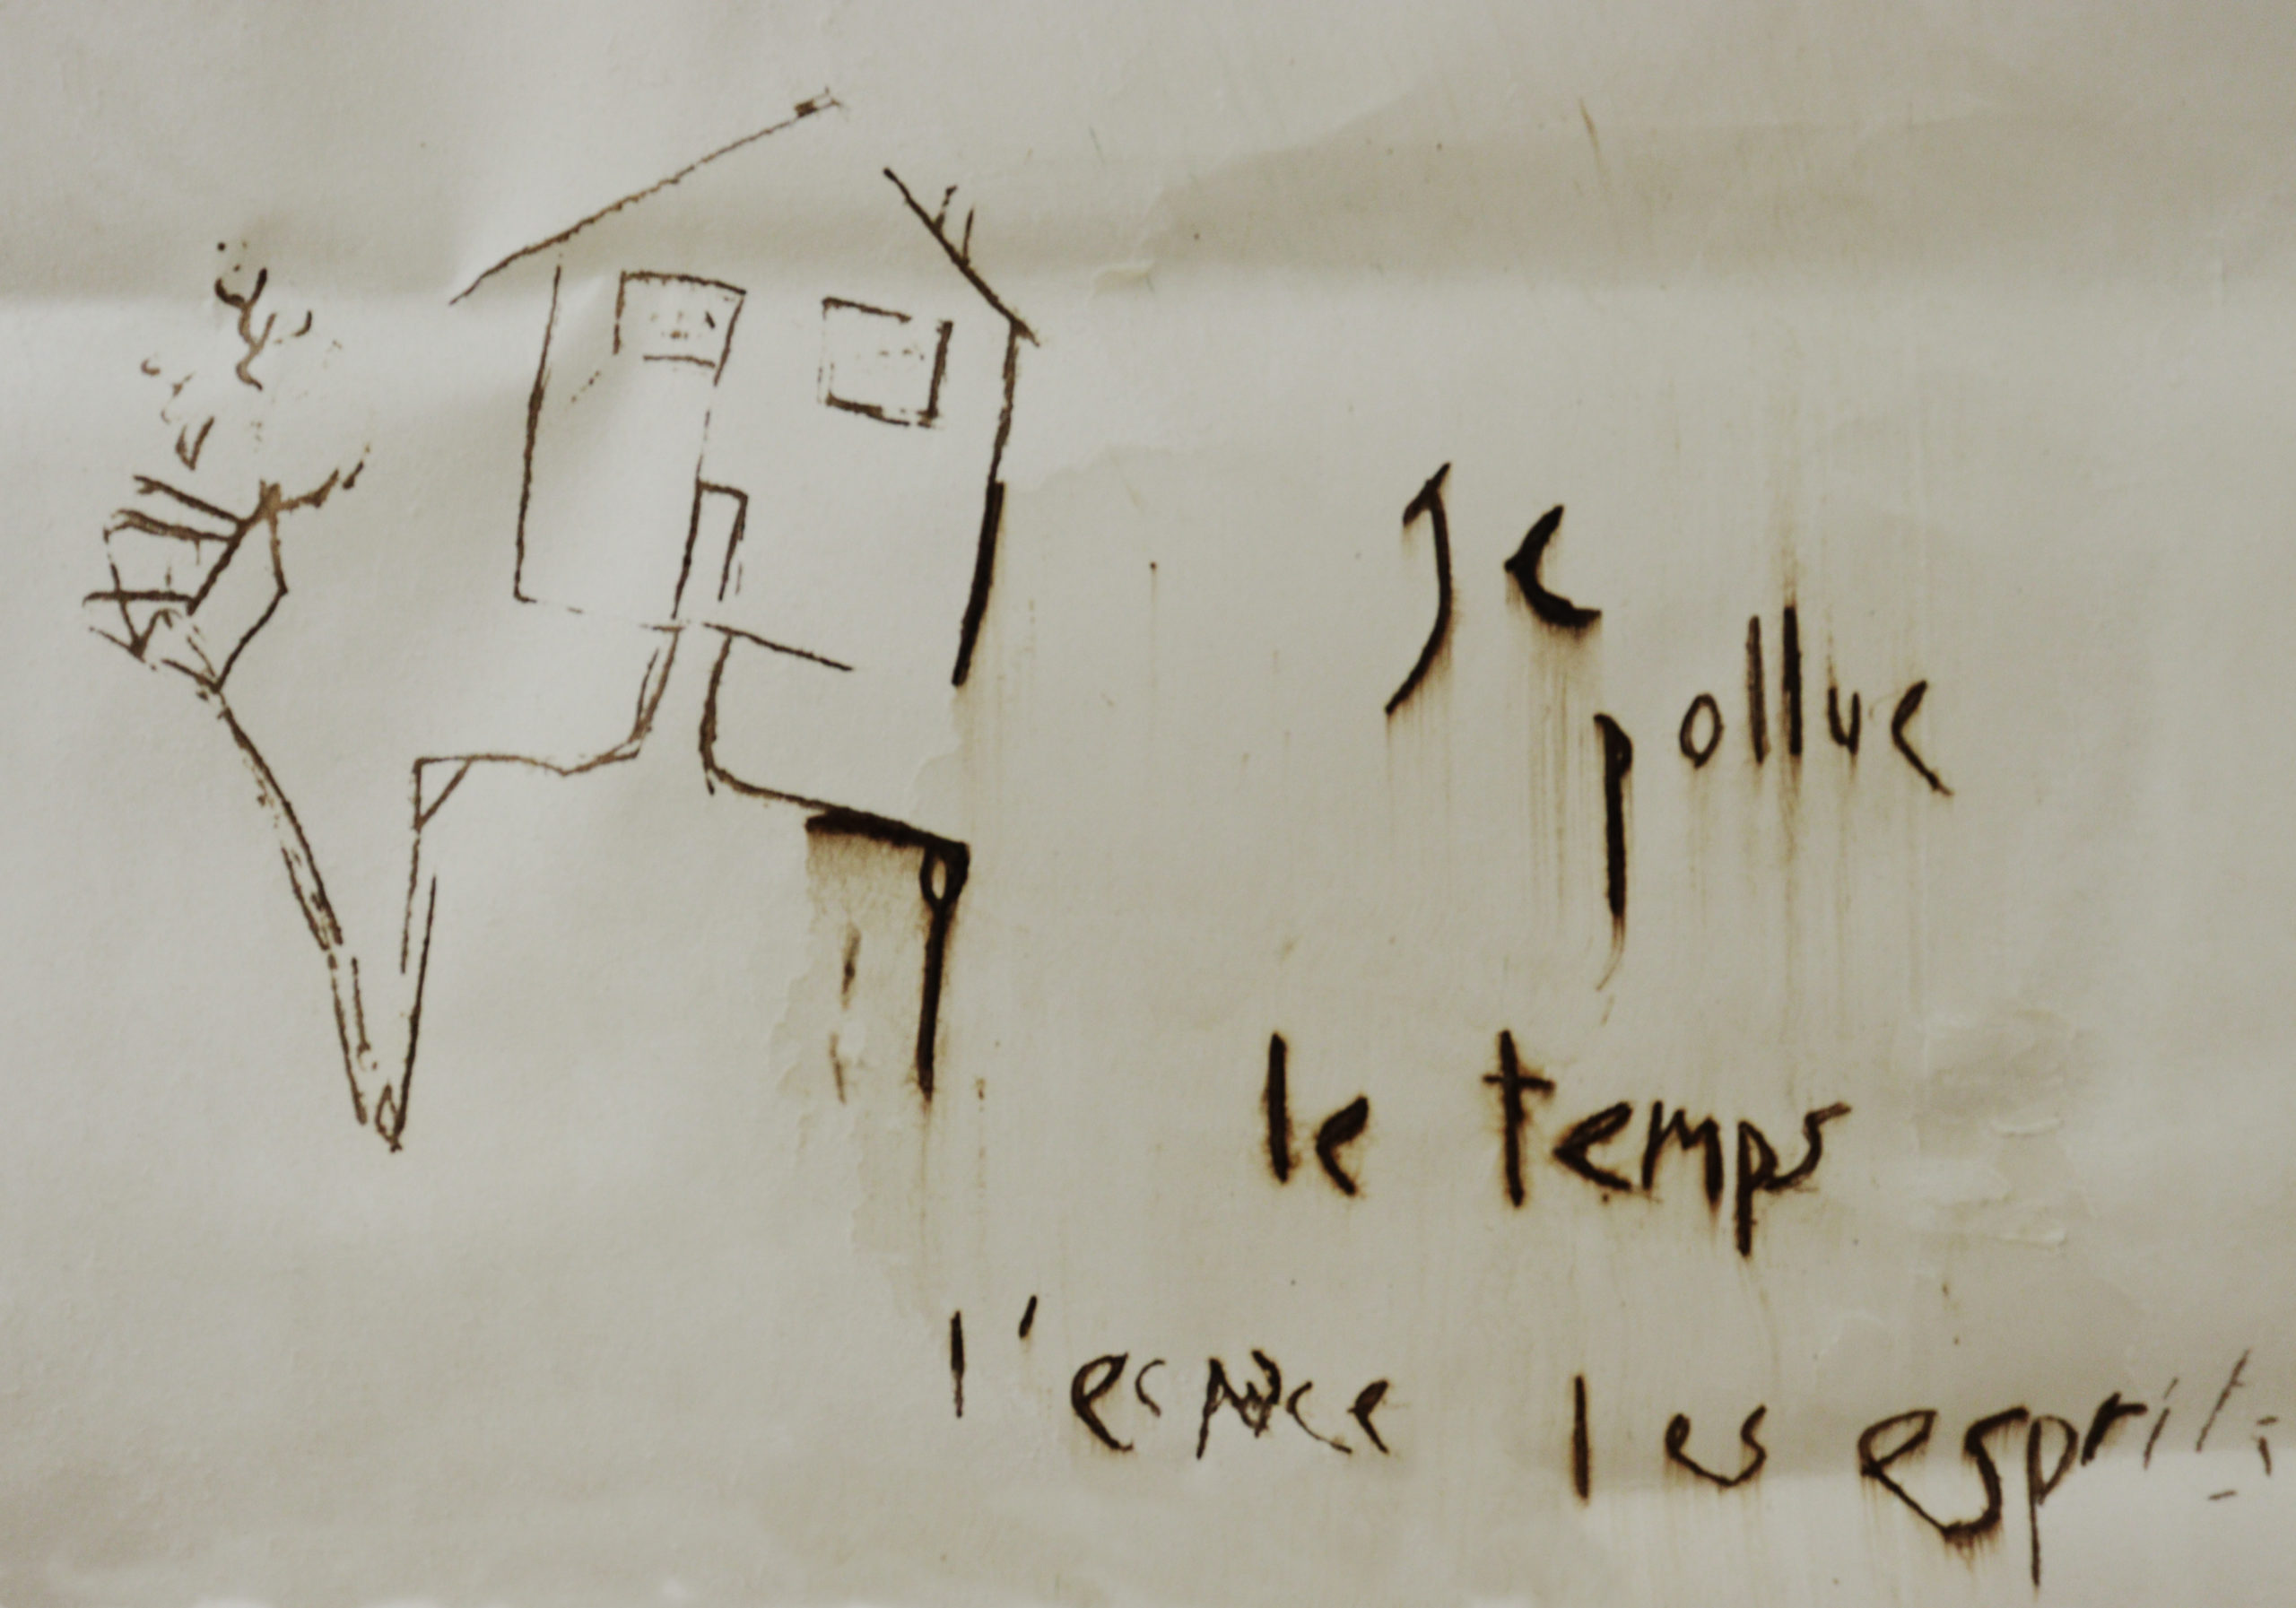 Je
pollue
le temps
l'espace les esprits